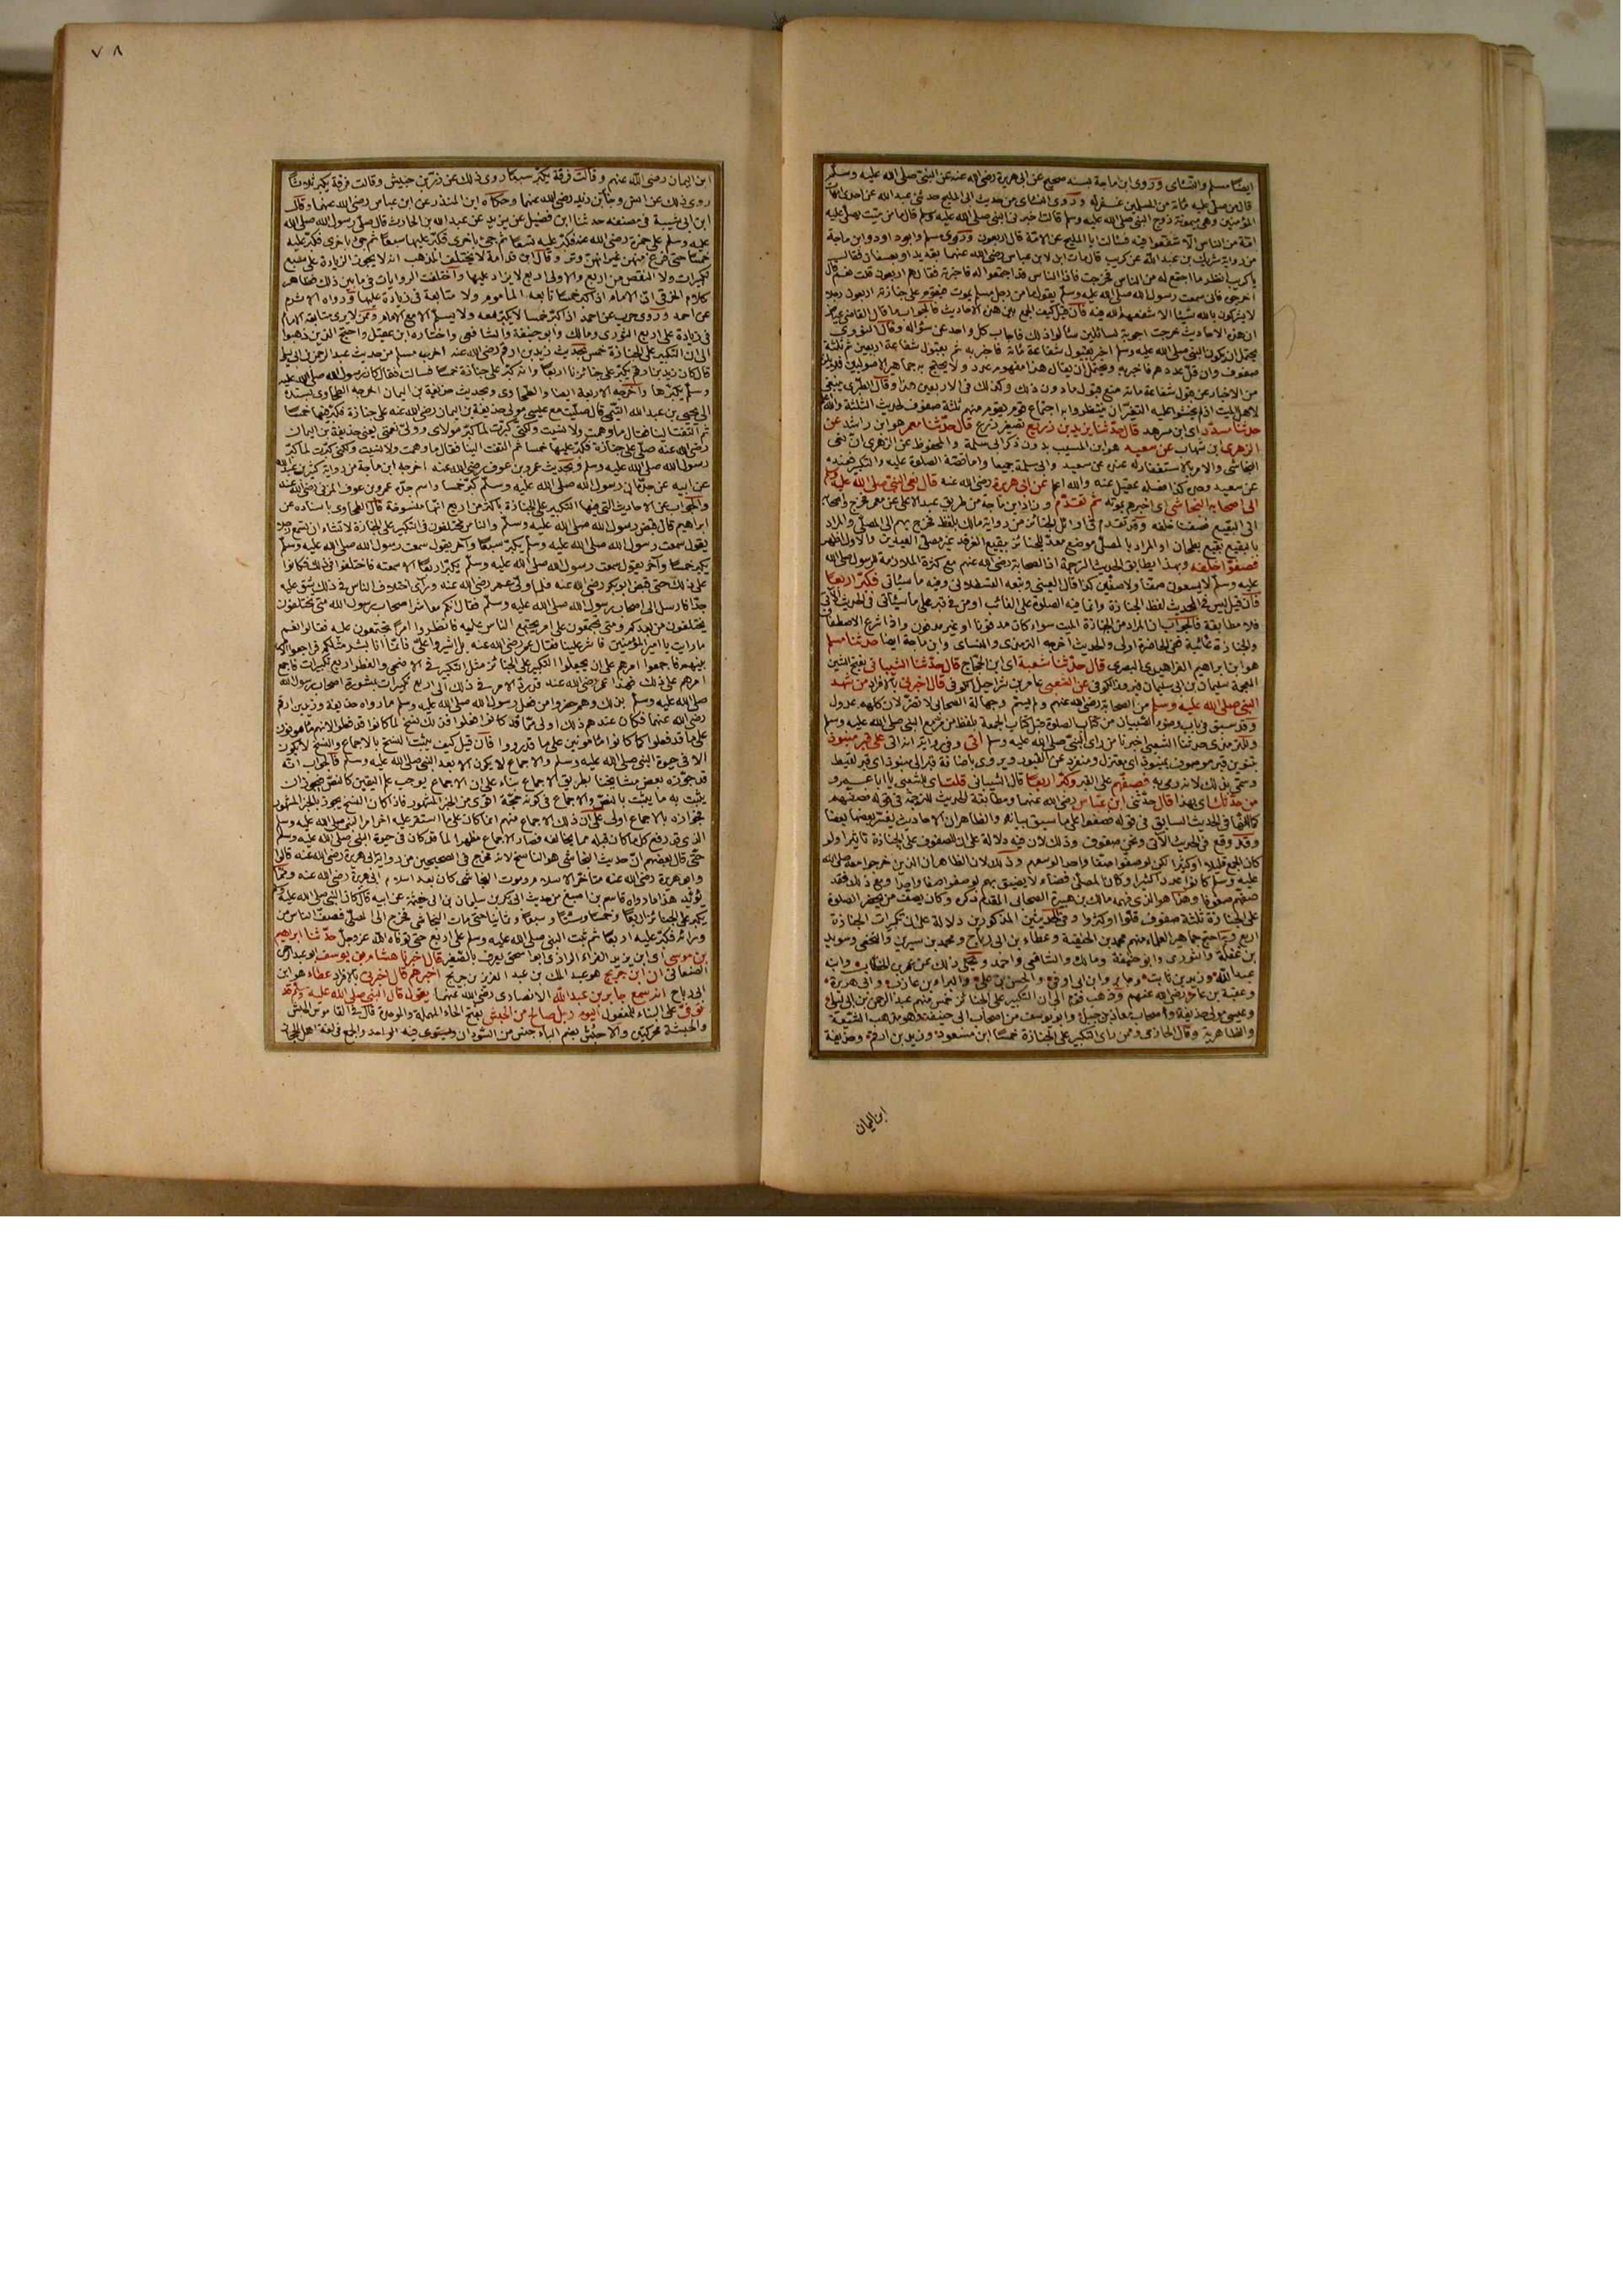 ايضًا مسلم والنسائى وروى ابن ماجة بسند صحيح عن ابى هريرة رضى الله عنه عن النبى صلى الله عليه وسلم
قال من صلى عليه مائة من المسلمين غفر له وروى النسائى من حديث ابى المليح حدثنى عبد الله عن احدى امهات
المؤمنين وهى ميمونة زوج النبى صلى الله عليه وسلم قالت اخبرنى النبى صلى الله عليه وسلم قال ما من ميت يصلى عليه
امة من الناس الا شفعوا فيه فسألت ابا المليح عن الامة قال اربعون وروى مسلم وابو داود وابن ماجة
من رواية شريك بن عبد الله عن كريب قال مات ابن لابن عباس رضى الله عنهما بقديد او بعسفان فقال
يا كريب انظر ما اجتمع له من الناس فخرجت فاذا الناس قد اجتمعوا له فاخبرته فقال هم اربعون قلت نعم قال
اخرجى فانى سمعت رسول الله صلى الله عليه وسلم يقول ما من رجل مسلم يموت فيقوم على جنازته اربعون رجلا
لا يشركون بالله شيئًا الا شفعهم الله فيه فان قيل كيف الجمع بين هذه الاحاديث فالجواب ما قال القاضى
ان هذه الاحاديث خرجت اجوبة لسائلين سألوا ذلك فاجاب كل واحد عن سؤاله وقال النووى
يحتمل ان يكون النبى صلى الله عليه وسلم اخبر بقبول شفاعة مائة فاخبر به ثم بقبول شفاعة اربعين ثم ثلثة
صفوف وان قل عددهم فاخبر به ويحتمل ان يقال هذا مفهوم عدد ولا يحتج به جماهير الاصوليين
من الاخبار عن قبول شفاعة مائة منع قبول ما دون ذلك وكذلك فى الاربعين هذا وقال الطبرى ينبغى
لاهل الميت اذا لم يخشوا عليه التغير ان ينتظروا به اجتماع قوم يقوم منهم ثلثة صفوف لحديث الثلثة والله اعلم
حدثنا مسدد اى ابن مسرهد قال حدثنا يزيد بن زريع تصغير زرع قال حدثنا معمر هو ابن راشد عن
الزهرى ابن شهاب عن سعيد هو ابن المسيب بدون ذكر ابى سلمة والمحفوظ عن الزهرى ان نعى
النجاشى والامر بالاستغفار له عنده عن سعيد وابى سلمة جميعا واما قصة الصلوة عليه والتكبير فعنده
عن سعيد وحده كذا فصله عقيل عنه والله اعلم عن ابى هريرة رضى الله عنه قال نعى النبى صلى الله عليه وسلم
الى اصحابه النجاشى اى اخبرهم بموته ثم تقدم وزاد ابن ماجة من طريق عبد الاعلى عن معمر فخرج واصحابه
الى البقيع فصفنا خلفه وقد تقدم فى اوائل الجنائز من رواية مالك بلفظ فخرج بهم الى المصلى والمراد
بالبقيع بقيع بطحان او المراد بالمصلى موضع معد للجنائز ببقيع الغرقد غير مصلى العيدين والاول اظهر
فصفوا خلفه وبهذا يطابق الحديث الترجمة اذ الصحابة رضى الله عنهم مع كثرة الملازمة لرسول صلى الله
عليه وسلم لا يسعون صفًا ولا صفين كذا قال العينى وتبعه القسطلانى وفيه ما سيأتى فكبر اربعًا
فان قيل ليس فى الحديث لفظ الجنازة وانما فيه الصلوة على الغائب او من فى قبر على ما سيأتى فى الحديث الآتى
فلا مطابقة فالجواب ان المراد من الجنازة الميت سواء كان مدفونا او غير مدفون واذا شرع الاصطفاف
والجنازة غائبة ففى الحاضرة اولى والحديث اخرجه الترمذى والنسائى وابن ماجة ايضا حدثنا مسلم
هو ابن ابراهيم الفراهيدى البصرى قال حدثنا شعبة اى ابن الحجاج قال حدثنا الشيبانى بفتح الشين
المعجمة سليمان بن ابى سليمان فيروز الكوفى عن الشعبى عامر بن شراحيل الكوفى قال اخبرنى بالافراد من شهد
النبى صلى الله عليه وسلم من الصحابة رضى الله عنهم ولم يسم وجهالة الصحابى لا تضر لان كلهم عدول
وقد سبق فى باب وضوء الصبيان من كتاب الصلوة قبل كتاب الجمعة بلفظ من مر مع النبى صلى الله عليه وسلم
وللترمذى حدثنا الشعبى اخبرنا من راى النبى صلى الله عليه وسلم اتى وفى رواية انه اتى على قبر منبوذ
بتنوين قبر موصوف بمنبوذ اى معتزل ومنفرد عن القبور ويروى باضافة قبر الى منبوذ اى قبر لقيط
وسمى بذلك لانه رمى به فصفهم على القبر وكبر اربعًا قال الشيبانى قلت اى للشعبى يا ابا عمرو
من حدثك اى بهذا قال حدثنى ابن عباس رضى الله عنهما ومطابقة الحديث للترجمة فى قوله فصفهم
كما انها فى الحديث السابق فى قوله فصفوا على ما سبق بيانه والظاهر ان الاحاديث يفسر بعضها بعضا
وقد وقع فى الحديث الآتى ونحن صفوف وذلك لان فيه دلالة على ان للصفوف على الجنازة تأثيرا ولو
كان الجمع قليلا او كثيرا لكن لو صفوا صفًا واحدا لوسعهم وذلك لان الظاهر ان الذين خرجوا معه صلى الله
عليه وسلم كانوا عددا كثيرا وكان المصلى فضاء لا يضيق بهم لو صفوا صفا واحدًا ومع ذلك فقد
صفهم صفوفا وهذا هو الذى فهمه مالك بن هبيرة الصحابى المقدم ذكره وكان يصف من يحضر الصلوة
على الجنازة ثلثة صفوف قلوا او كثروا وفى الحديثين المذكورين دلالة على ان تكبيرات الجنازة
اربع وبه احتج جماهير العلماء منهم محمد بن الحنفية وعطاء بن ابى رباح ومحمد بن سيرين والنخعى وسويد
بن غفلة والثورى وابو حنيفة ومالك والشافعى واحمد ويحكى ذلك عن عمر بن الخطاب وابنه
عبد الله وزيد بن ثابت وجابر وابن ابى اوفى والحسن بن على والبراء بن عازب وابى هريرة
وعقبة بن عامر رضى الله عنهم وذهب قوم الى ان التكبير على الجنائز خمس منهم عبد الرحمن بن ابى ليلى
وعيسى مولى حذيفة واصحاب معاذ بن جبل وابو يوسف من اصحاب ابى حنيفة وهو مذهب الشيعة
والظاهرية وقال الحازمى وممن راى التكبير على الجنازة خمسًا ابن مسعود وزيد بن ارقم وحذيفة
ابن اليمان
٧٨
ابن اليمان رضى الله عنهم وقالت فرقة يكبر سبعًا روى ذلك عن زر بن حبيش وقالت فرقة يكبر ثلاثًا
روى ذلك عن انس وجابر بن زيد رضى الله عنهما وحكاه ابن المنذر عن ابن عباس رضى الله عنهما وقال
ابن ابى شيبة فى مصنفه حدثنا ابن فضيل عن يزيد عن عبد الله بن الحارث قال صلى رسول الله صلى الله
عليه وسلم على حمزة رضى الله عنه فكبر عليه تسعًا ثم جئ باخرى فكبر عليها سبعًا ثم جئ باخرى فكبر عليه
خمسًا حتى فرغ منهن غير انهن وتر وقال ابن قدامة لا يختلف المذهب انه لا يجوز الزيادة على سبع
تكبيرات ولا النقص من اربع والاولى اربع لا يزاد عليها واختلفت الروايات فى ما بين ذلك فظاهر
كلام الخرقى ان الامام اذا كبر خمسًا تابعه المأموم ولا متابعة فى زيادة عليها ورواه الاثرم
عن احمد وروى حرب عن احمد اذا كبر خمسا لا يكبر معه ولا يسلم الا مع الامام وممن لا يرى متابعة الامام
فى زيادة على اربع الثورى ومالك وابو حنيفة والشافعى واختاره ابن عقيل واحتج الذين ذهبوا
الى ان التكبير على الجنازة خمس بحديث زيد بن ارقم رضى الله عنه اخرجه مسلم من حديث عبد الرحمن بن ابى ليلى
قال كان زيد بن ارقم يكبر على جنائزنا اربعًا وانه كبر على جنازة خمسًا فسألته فقال كان رسول الله صلى الله عليه
وسلم يكبرها واخرجه الاربعة ايضا والطحاوى وبحديث حذيفة بن اليمان اخرجه الطحاوى بسنده
الى يحيى بن عبد الله التيمى قال صليت مع عيسى مولى حذيفة بن اليمان رضى الله عنه على جنازة فكبر عليها خمسًا
ثم التفت الينا فقال ما وهمت ولا نسيت ولكنى كبرت كما كبر مولاى وولى نعمتى يعنى حذيفة بن اليمان
رضى الله عنه صلى على جنازة فكبر عليها خمسا ثم التفت الينا فقال ما وهمت ولا نسيت ولكنى كبرت كما كبر
رسول الله صلى الله عليه وسلم وبحديث عمرو بن عوف رضى الله عنه اخرجه ابن ماجة من رواية كثير بن عبد الله
عن ابيه عن جده ان رسول الله صلى الله عليه وسلم كبر خمسا واسم جده عمرو بن عوف المزنى رضى الله عنه
والجواب عن الاحاديث التى فيها التكبير على الجنازة باكثر من اربع انها منسوخة قال الطحاوى باسناده عن
ابراهيم قال قبض رسول الله صلى الله عليه وسلم والناس مختلفون فى التكبير على الجنازة لا تشاء ان تسمع رجلا
يقول سمعت رسول الله صلى الله عليه وسلم يكبر سبعًا وآخر يقول سمعت رسول الله صلى الله عليه وسلم
يكبر خمسًا وآخر يقول سمعت رسول الله صلى الله عليه وسلم يكبر اربعًا الا سمعته فاختلفوا فى ذلك فكانوا
على ذلك حتى قبض ابو بكر رضى الله عنه فلما ولى عمر رضى الله عنه وراى اختلاف الناس فى ذلك شق عليه
جدًا فارسل الى اصحاب رسول الله صلى الله عليه وسلم فقال انكم معاشر اصحاب رسول الله متى تختلفون
يختلفون من بعدكم ومتى تجتمعون على امر يجتمع الناس عليه فانظروا امرًا تجتمعون عليه فقالوا نعم
ما رايت يا امير المؤمنين فاشر علينا فقال عمر رضى الله عنه بل اشيروا على فانما انا بشر مثلكم فتراجعوا الامر
بينهم فاجمعوا امرهم على ان يجعلوا التكبير على الجنائز مثل التكبير فى الاضحى والفطر اربع تكبيرات فاجمع
امرهم على ذلك فهذا عمر رضى الله عنه قد رد الامر فى ذلك الى اربع تكبيرات بمشورة اصحاب رسول الله
صلى الله عليه وسلم بذلك وهم حضروا من فعل رسول الله صلى الله عليه وسلم ما رواه حذيفة وزيد بن ارقم
رضى الله عنهما فكان عندهم ذلك اولى مما قد كانوا فعلوا فذلك نسخ لما كانوا قد فعلوا لانهم مأمونون
على ما قد فعلوا كما كانوا مأمونين على ما قد رووا فان قيل كيف يثبت النسخ بالاجماع والنسخ لا يكون
الا فى حيوة النبى صلى الله عليه وسلم والاجماع لا يكون الا بعد النبى صلى الله عليه وسلم فالجواب انه
قد جوزه بعض مشايخنا بطريق الاجماع بناء على ان الاجماع يوجب علم اليقين كالنص فيجوز ان
يثبت به ما يثبت بالنص والاجماع فى كونه حجة اقوى من الخبر المشهور فاذا كان النسخ يجوز بالخبر المشهور
فجوازه بالاجماع اولى على ان ذلك الاجماع منهم انما كان على ما استقر عليه آخر امر النبى صلى الله عليه وسلم
الذى قد رفع كل ما كان قبله مما يخالفه فصار الاجماع مظهرا لما قد كان فى حيوة النبى صلى الله عليه وسلم
حتى قال بعضهم ان حديث النجاشى هو الناسخ لانه مخرج فى الصحيحين من رواية ابى هريرة رضى الله عنه قالوا
وابو هريرة رضى الله عنه متأخر الاسلام وموت النجاشى كان بعد اسلام ابى هريرة رضى الله عنه ومما
يؤيد هذا ما رواه قاسم بن اصبغ من حديث ابى بكر بن سليمان بن ابى حثمة عن ابيه قال كان النبى صلى الله عليه وسلم
يكبر على الجنائز اربعًا وخمسًا وستًا وسبعًا وثمانيا حتى مات النجاشى فخرج الى المصلى فصف الناس من
ورائه فكبر عليه اربعًا ثم ثبت النبى صلى الله عليه وسلم على اربع حتى توفاه الله عز وجل حدثنا ابراهيم
بن موسى اى ابن يزيد الفراء الرازى ابو اسحق يعرف بالصغير قال اخبرنا هشام بن يوسف ابو عبد الرحمن
الصنعانى ان ابن جريج هو عبد الملك بن عبد العزيز بن جريج اخبرهم قال اخبرنى بالافراد عطاء هو ابن
ابى رباح انه سمع جابر بن عبد الله الانصارى رضى الله عنهما يقول قال النبى صلى الله عليه وسلم قد
توفى على البناء للمفعول اليوم رجل صالح من الحبش بفتح الحاء المهملة والموحدة قال فى القاموس الحبش
والحبشة محركتين والاحبش بضم الباء جنس من السودان ويستوى فيه الواحد والجمع فى لغة اهل